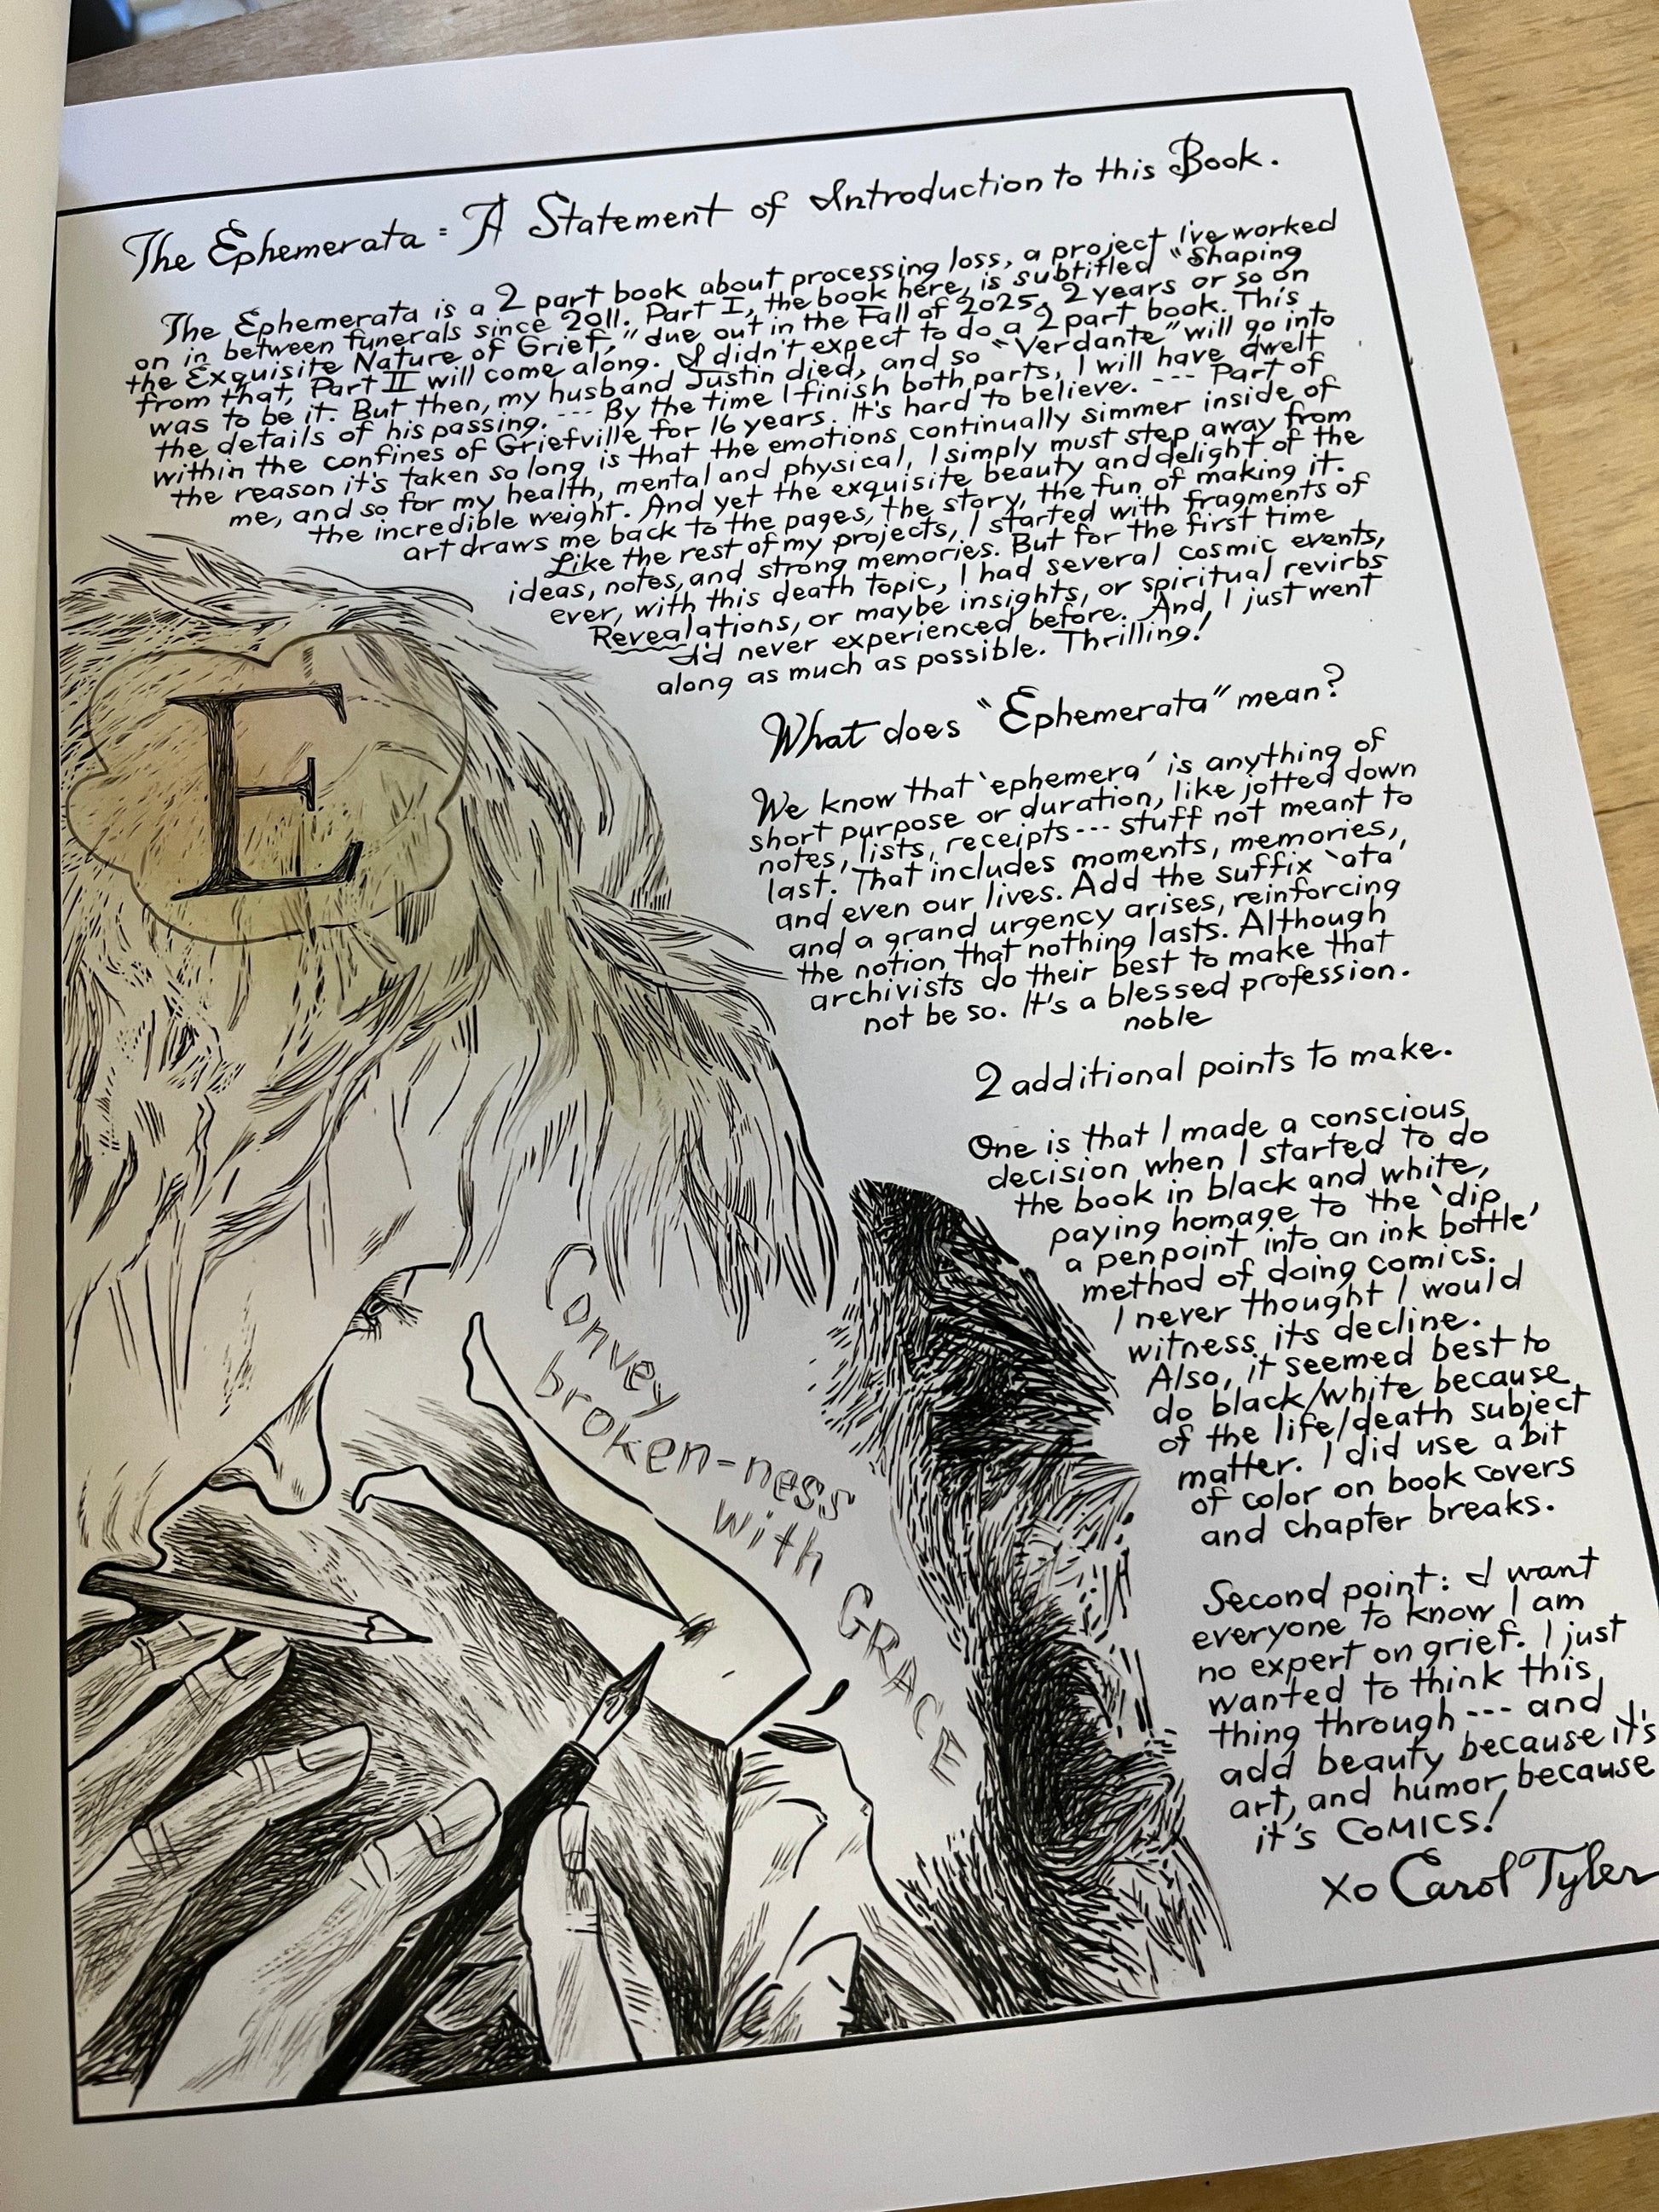 The Ephemerata: A Statement of Introduction to this Book.
The Ephemerata is a 2 part book about processing loss, a project i've worked
on in between funerals since 2011. Part I, the book here, is subtitled "Shaping
the Exquisite Nature of Grief," due out in the Fall of 2025. 2 years or so on
from that, Part II will come along. I didn't expect to do a 2 part book. This
was to be it. But then, my husband Justin died, and so "Verdante" will go into
the details of his passing. --- By the time I finish both parts, I will have dwelt
within the confines of Griefville for 16 years. It's hard to believe. --- Part of
the reason it's taken so long is that the emotions continually simmer inside of
me, and so for my health, mental and physical, I simply must step away from
the incredible weight. And yet the exquisite beauty and delight of the
art draws me back to the pages, the story, the fun of making it.
Like the rest of my projects, I started with fragments of
ideas, notes, and strong memories. But for the first time
ever, with this death topic, I had several cosmic events,
Revealations, or maybe insights, or spiritual revirbs
I'd never experienced before. And, I just went
along as much as possible. Thrilling!
What does "Ephemerata" mean?
We know that 'ephemera' is anything of
short purpose or duration, like jotted down
notes, lists, receipts --- stuff not meant to
last. That includes moments, memories,
and even our lives. Add the suffix 'ata'
and a grand urgency arises, reinforcing
the notion that nothing lasts. Although
archivists do their best to make that
not be so. It's a blessed profession.
noble
2 additional points to make.
One is that I made a conscious
decision when I started to do
the book in black and white,
paying homage to the 'dip
a penpoint into an ink bottle'
method of doing comics.
I never thought I would
witness its decline.
Also, it seemed best to
do black/white because
of the life/death subject
matter. I did use a bit
of color on book covers
and chapter breaks.
Second point: I want
everyone to know I am
no expert on grief. I just
wanted to think this
thing through --- and
add beauty because it's
art, and humor because
it's COMICS!
XO Carol Tyler
E
Convey
broken-ness
with GRACE